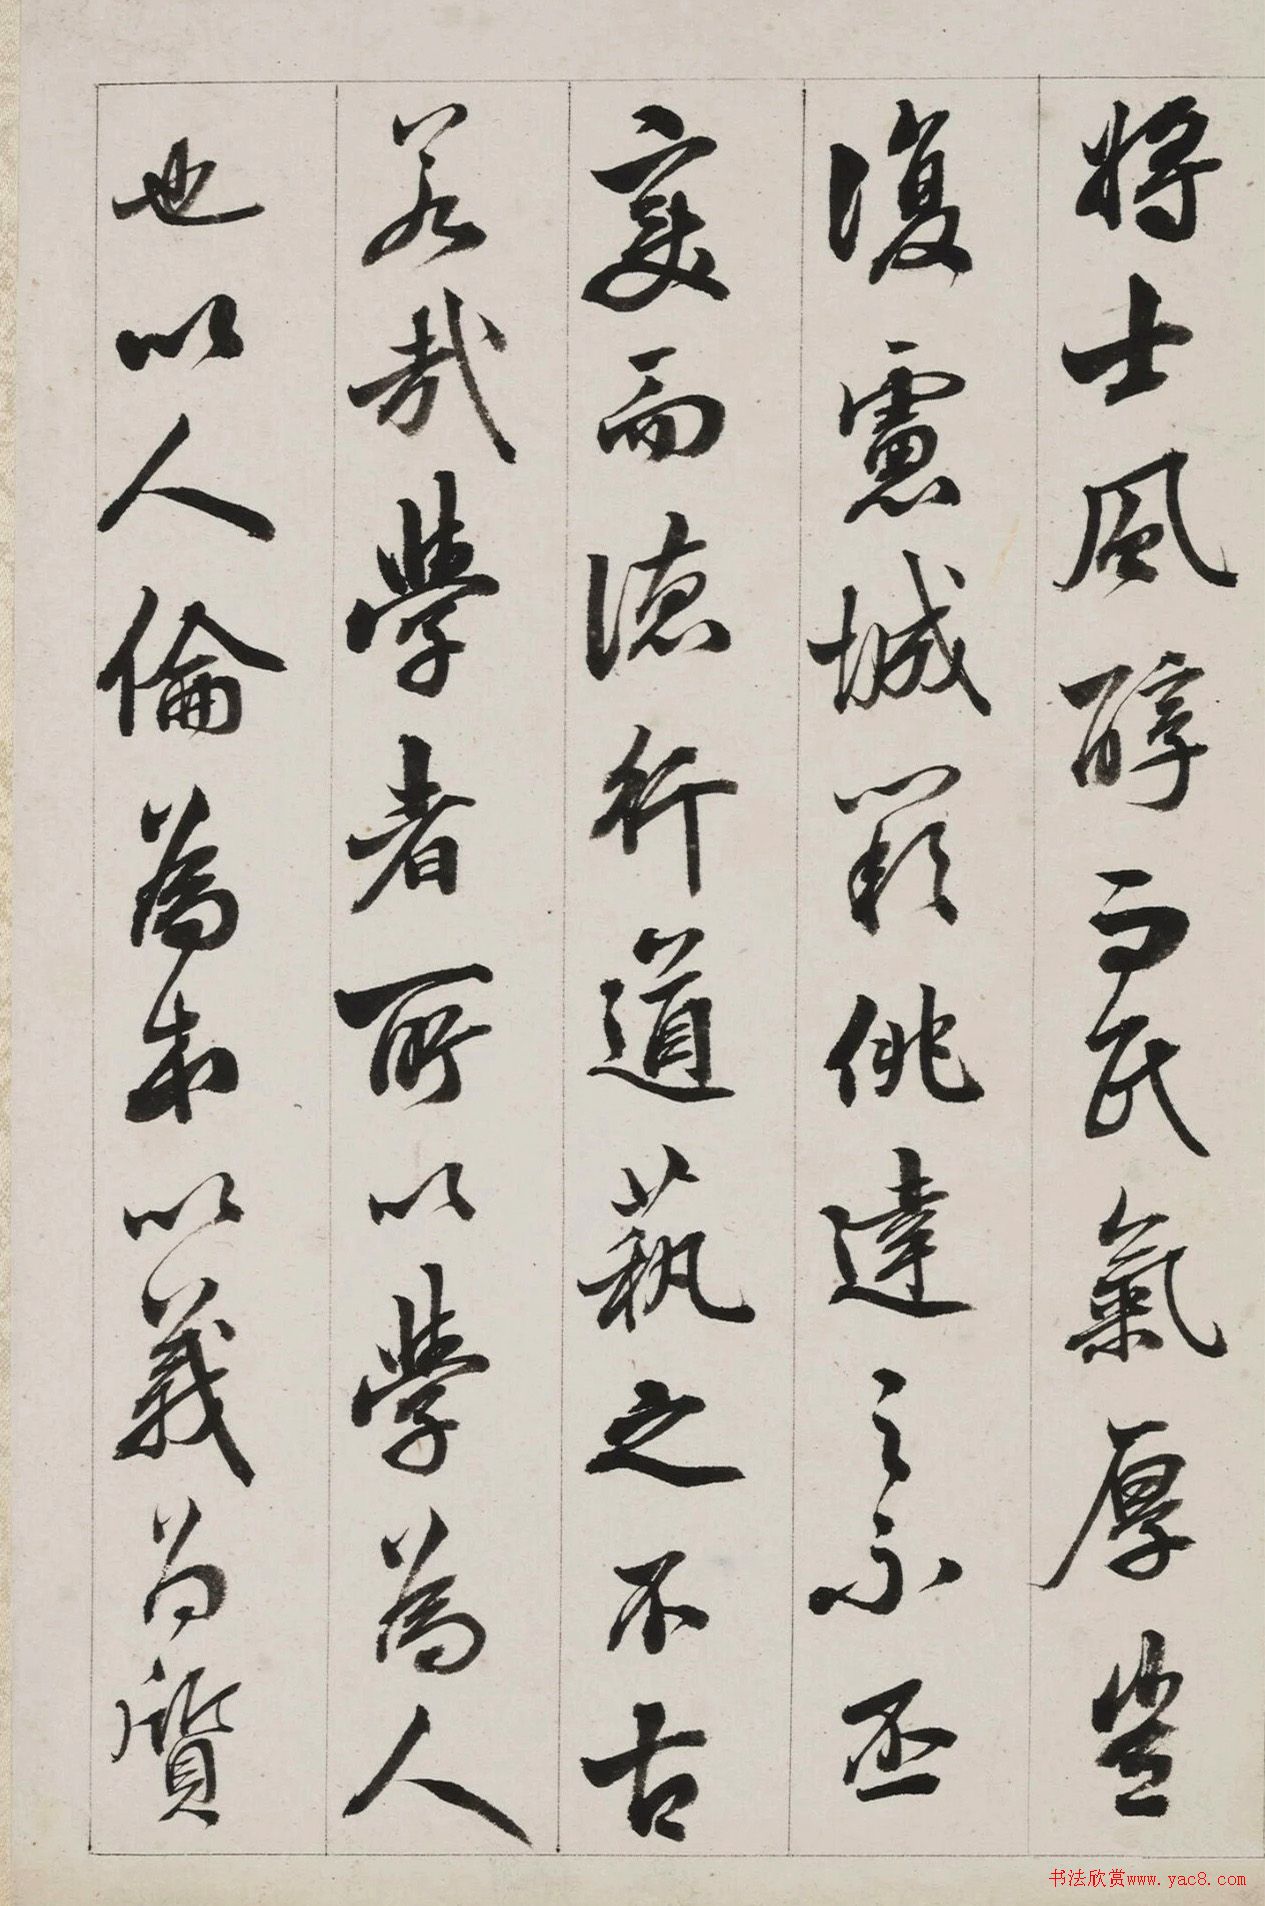 將士風醇而民氣厚豈
復慮城闕佻達之不丕
變而德行道藝之不古
若哉學者所以學為人
也以人倫為本以義為質
书法欣赏www.yac8.com